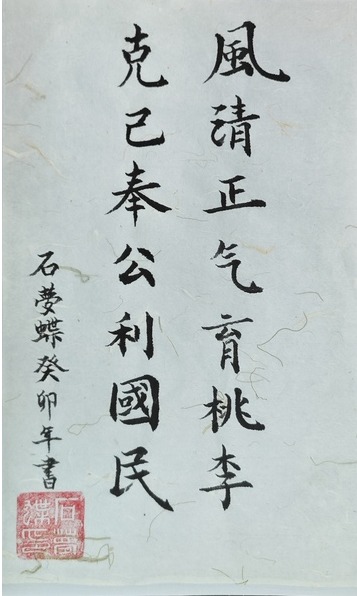 風清正气育桃李
克己奉公利國民
石夢蝶癸卯年書
石夢蝶印